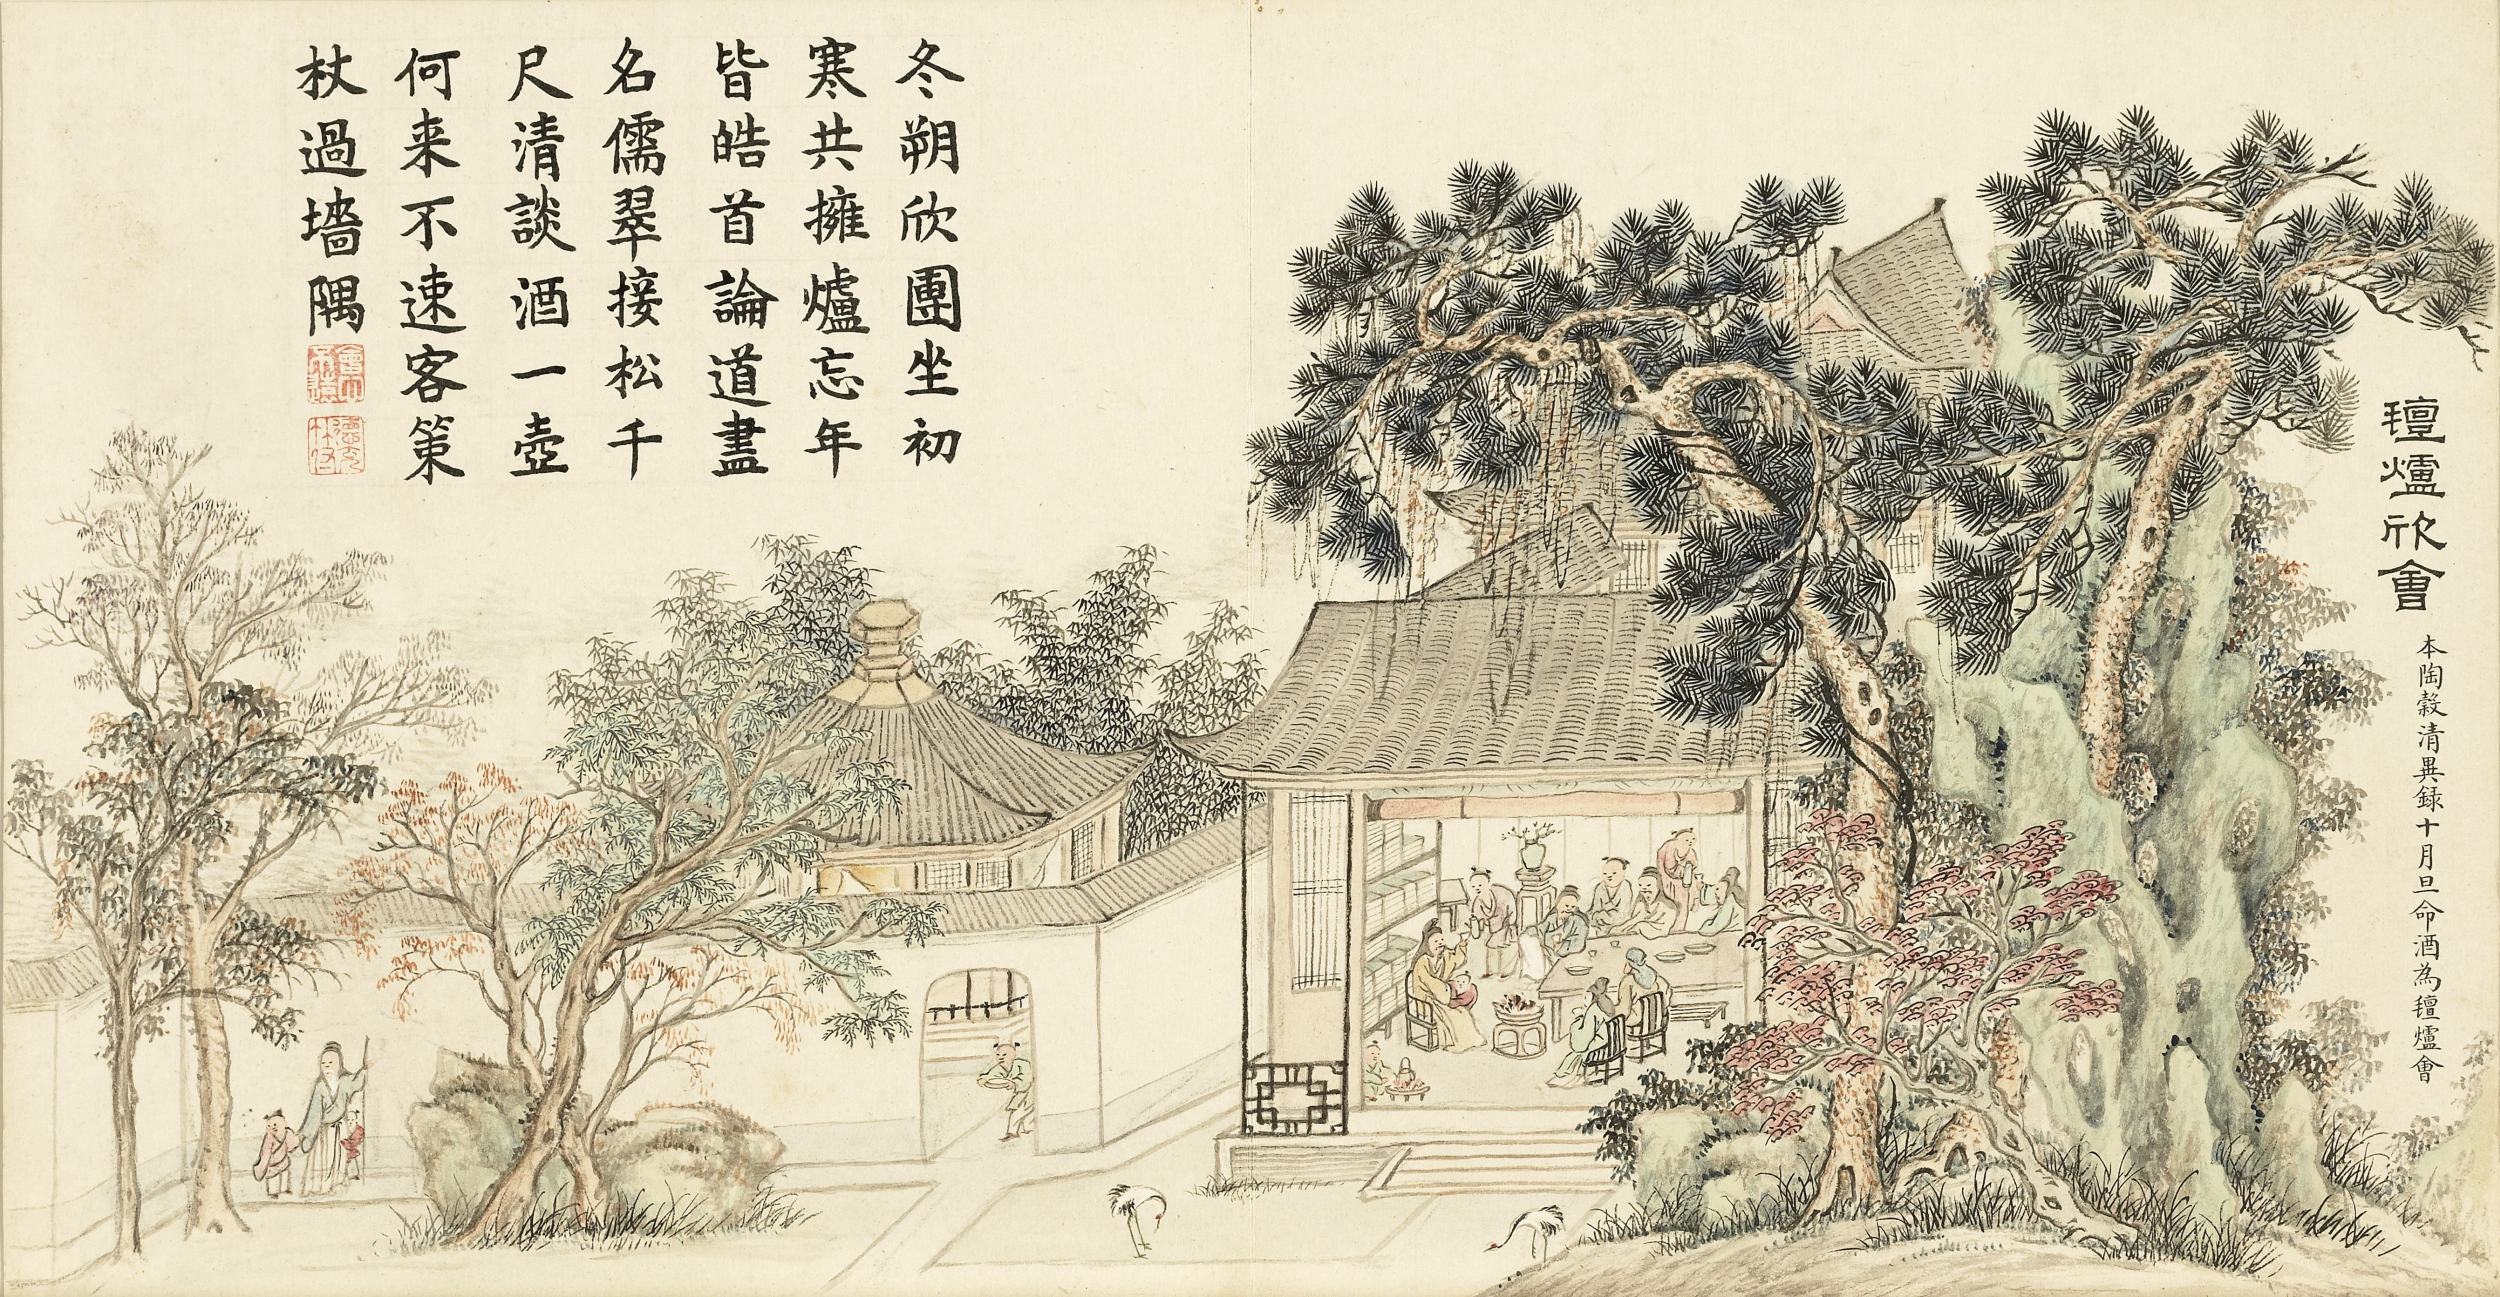 氈爐欣會
本陶穀清異録十月旦命酒為氈爐會
冬朔欣團坐初
寒共擁爐忘年
皆皓首論道盡
名儒翠接松千
尺清談酒一壺
何来不速客策
杖過墻隅
會心不遠
德充符